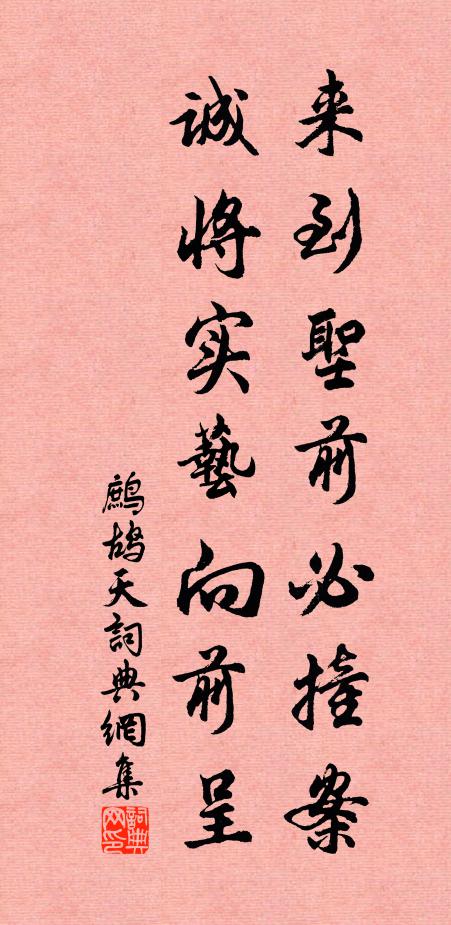 来到聖前必撞案
誠将实藝向前呈
鷓鴣天詞典網集
詞典网印